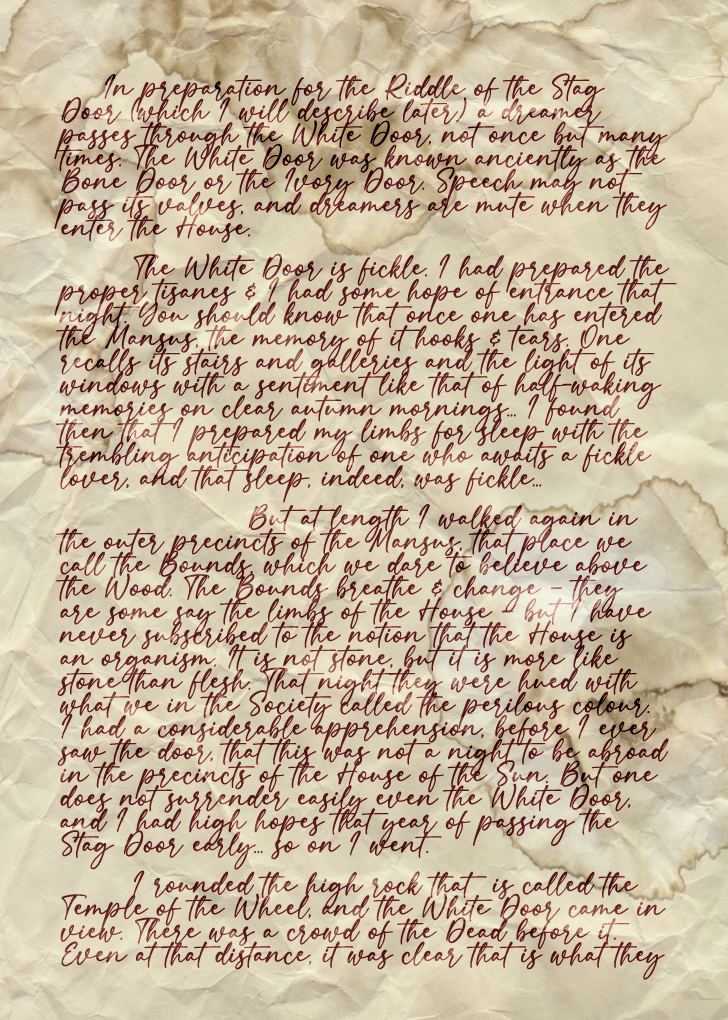 In preparation for the Riddle of the Stag
Door (which I will describe later) a dreamer
passes through the White Door, not once but many
times. The White Door was known anciently as the
Bone Door or the Ivory Door. Speech may not
pass its valves, and dreamers are mute when they
enter the House.
The White Door is fickle. I had prepared the
proper tisanes & I had some hope of entrance that
night. You should know that once one has entered
the Mansus, the memory of it hooks & tears. One
recalls its stairs and galleries and the light of its
windows with a sentiment like that of half-waking
memories on clear autumn mornings... I found
then that I prepared my limbs for sleep with the
trembling anticipation of one who awaits a fickle
lover, and that sleep, indeed, was fickle...
But at length I walked again in
the outer precincts of the Mansus, that place we
call the Bounds, which we dare to believe above
the Wood. The Bounds breathe & change - they
are some say the limbs of the House - but I have
never subscribed to the notion that the House is
an organism. It is not stone, but it is more like
stone than flesh. That night they were hued with
what we in the Society called the perilous colour.
I had a considerable apprehension, before I ever
saw the door, that this was not a night to be abroad
in the precincts of the House of the Sun. But one
does not surrender easily even the White Door,
and I had high hopes that year of passing the
Stag Door early... so on I went.
I rounded the high rock that is called the
Temple of the Wheel, and the White Door came in
view. There was a crowd of the Dead before it.
Even at that distance, it was clear that is what they